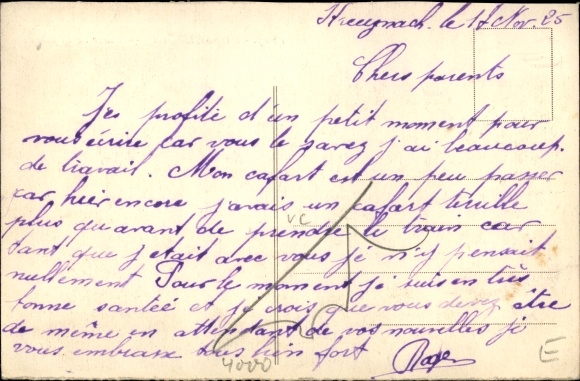 Kreuznach. le 17 Nov. 25
Chers parents
J'es profité d'un petit moment pour
vous écrite car vous le savez j'ai beaucoup.
de travail. Mon cafart est un peu passer
car hier encore j'avais un cafart terrible
plus qu'avant de prendre le train car
tant que j'etait avec vous je n'y pensait
nullement Pour le moment je suis en très
bonne santée et je crois que vous devez être
de même en attendant de vos nouvelles je
vous embrasse tous bien fort
VC
4000
E